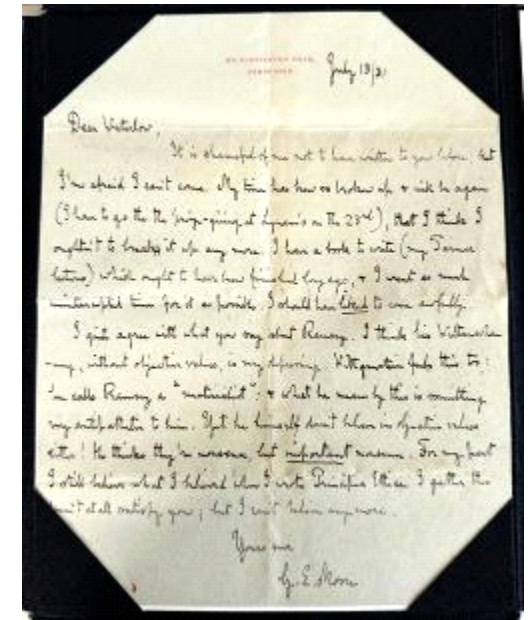 86, CHESTERTON ROAD,
CAMBRIDGE.
July 13/31
Dear Waterlow,
It is shameful of me not to have written to you before; but
I'm afraid I can't come. My time has been so broken up & will be again
(I have to go to the prize-giving at on the 23rd), that I think I
oughtn't to break it up any more. I have a book to write (my Tarner
lectures) which ought to have been finished long ago, & I want as much
uninterrupted time for it as possible. I should have liked to come awfully.
I quite agree with what you say about Ramsey. I think his Weltanschau-
-ung, without objective values, is very depressing. Wittgenstein feels this too:
he calls Ramsey a "materialist"; & what he means by this is something
very antipathetic to him. Yet he himself doesn't believe in objective values
either! He thinks they're nonsense, but important nonsense. For my part
I still believe what I believed when I wrote Principia Ethica. I gather this
won't at all satisfy you; but I can't believe any more.
Yours ever
G. E. Moore